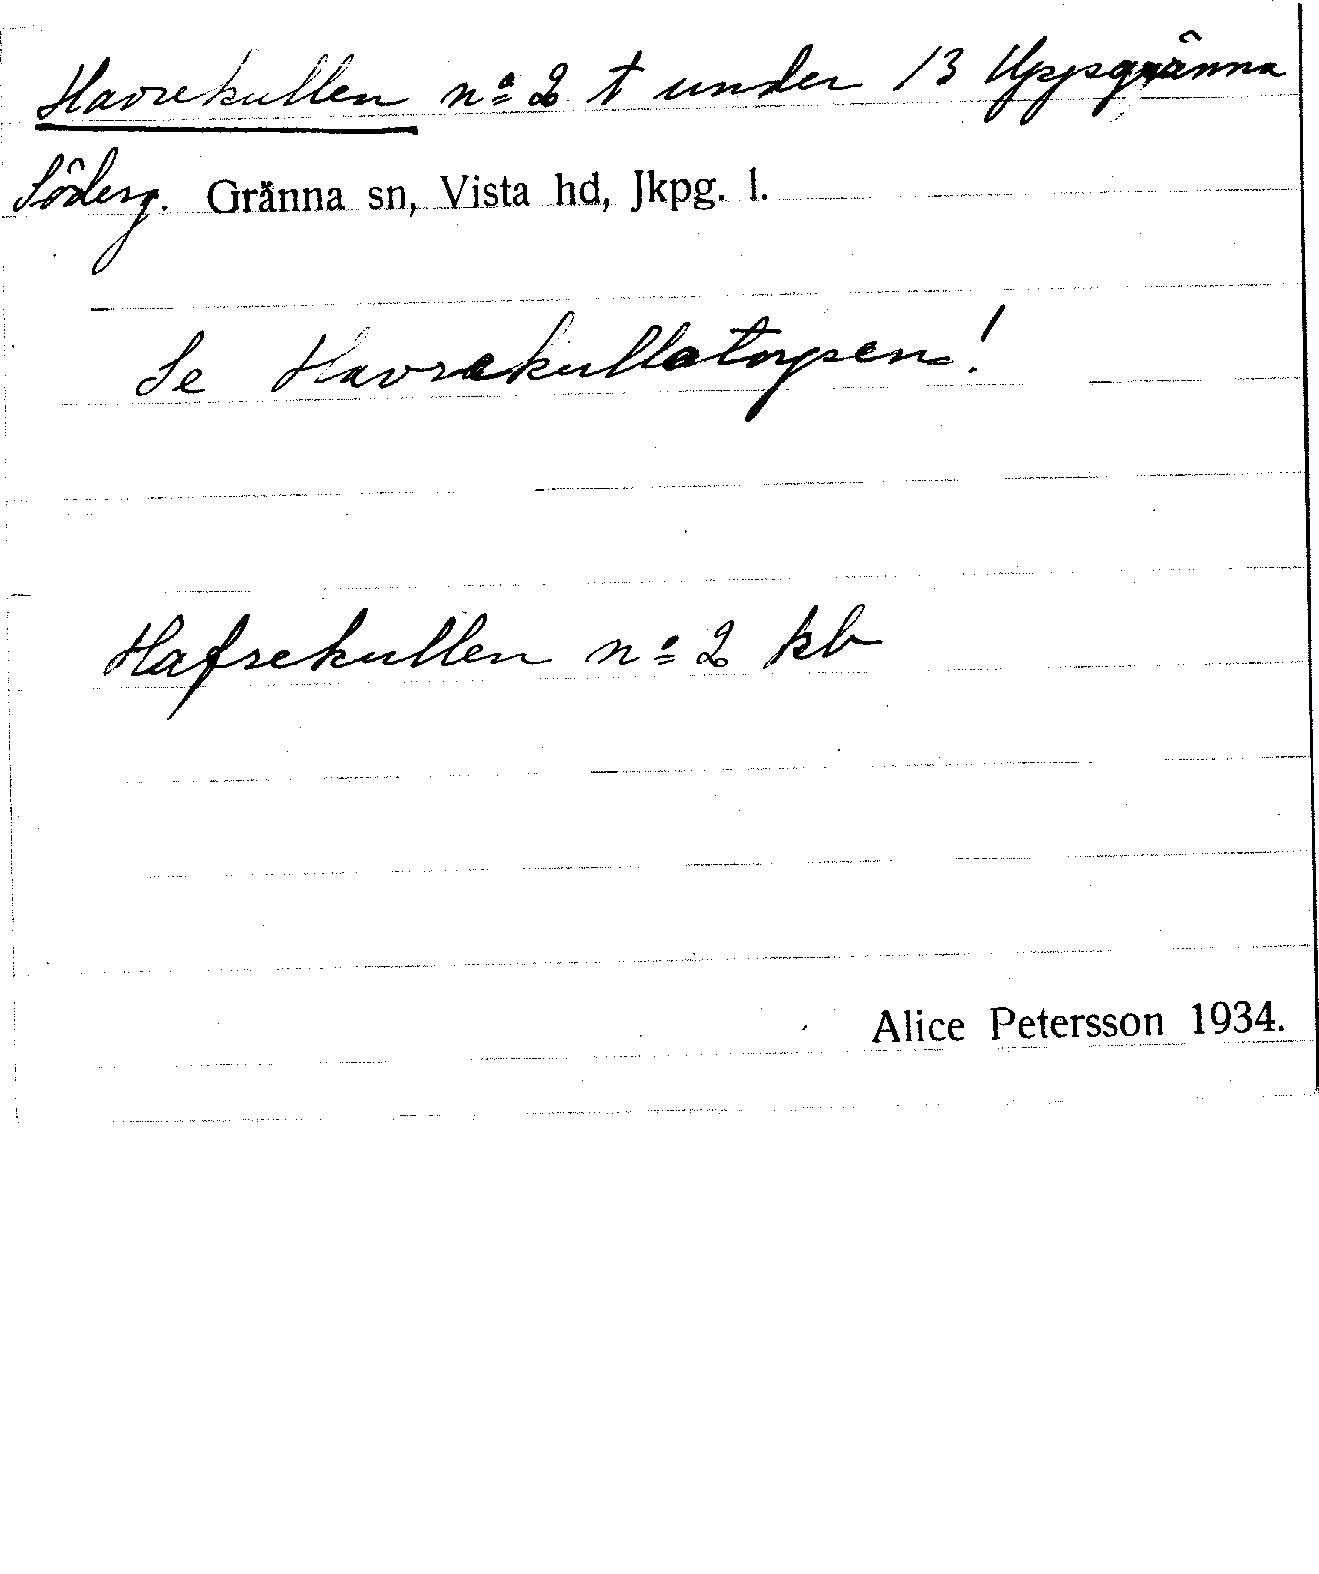 Havrekullen nº 2 t under 13 Uppgränna
Söderg. Gränna sn, Vista hd, Jkpg. l.
Se Havrekullatorpen!
Hafrekullen nº 2 kb
Alice Petersson 1934.